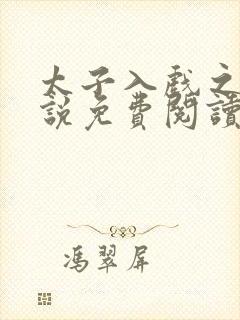 太子入戲之
說免費閱讀
馮翠屏